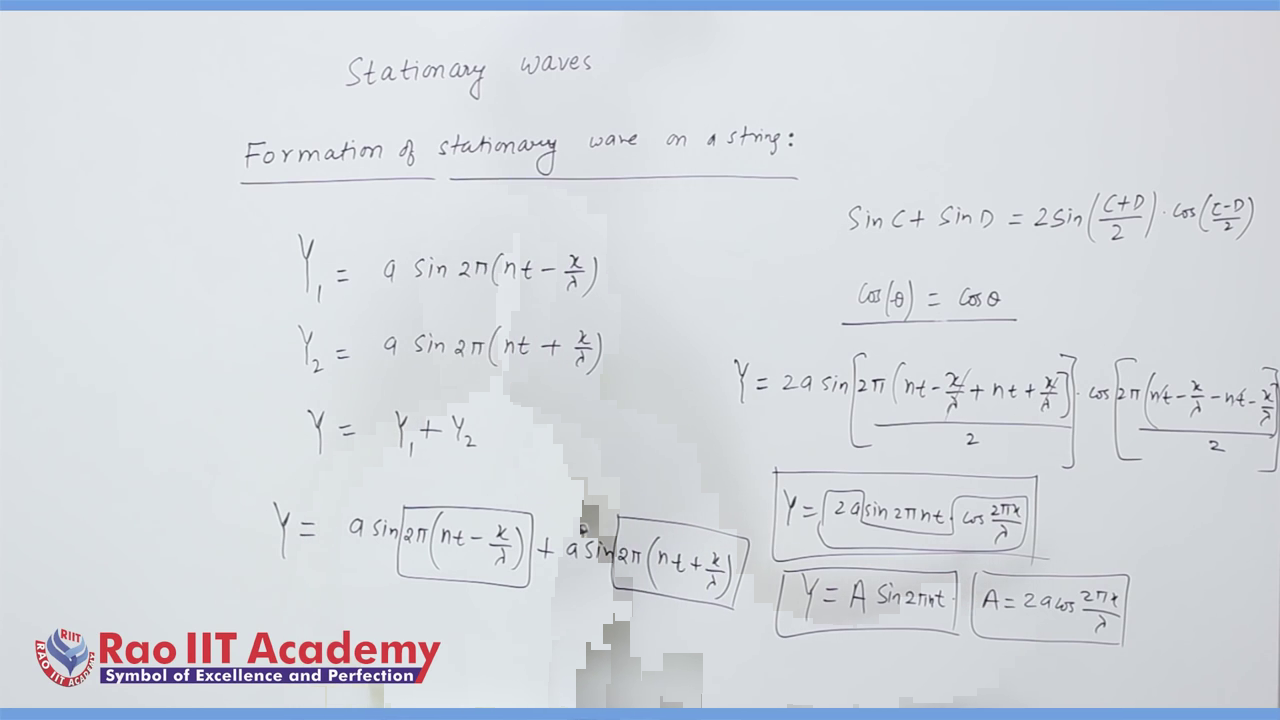 Stationary waves
Formation of stationary wave on a string:
Y₁ = a sin 2π(nt − x/λ)
Y₂ = a sin 2π(nt + x/λ)
Y = Y₁ + Y₂
Y = a sin 2π(nt − x/λ) + a sin 2π(nt + x/λ)
Sin C + Sin D = 2 Sin((C+D)/2) · cos((C−D)/2)
Cos(-θ) = Cos θ
Y = 2a sin[2π(nt − x/λ + nt + x/λ)/2] · cos[2π(nt − x/λ − nt − x/λ)/2]
Y = 2a sin 2πnt · cos 2πx/λ
Y = A Sin 2πnt · A = 2a cos 2πx/λ
RIIT
RAO IIT ACADEMY
Rao IIT Academy
Symbol of Excellence and Perfection